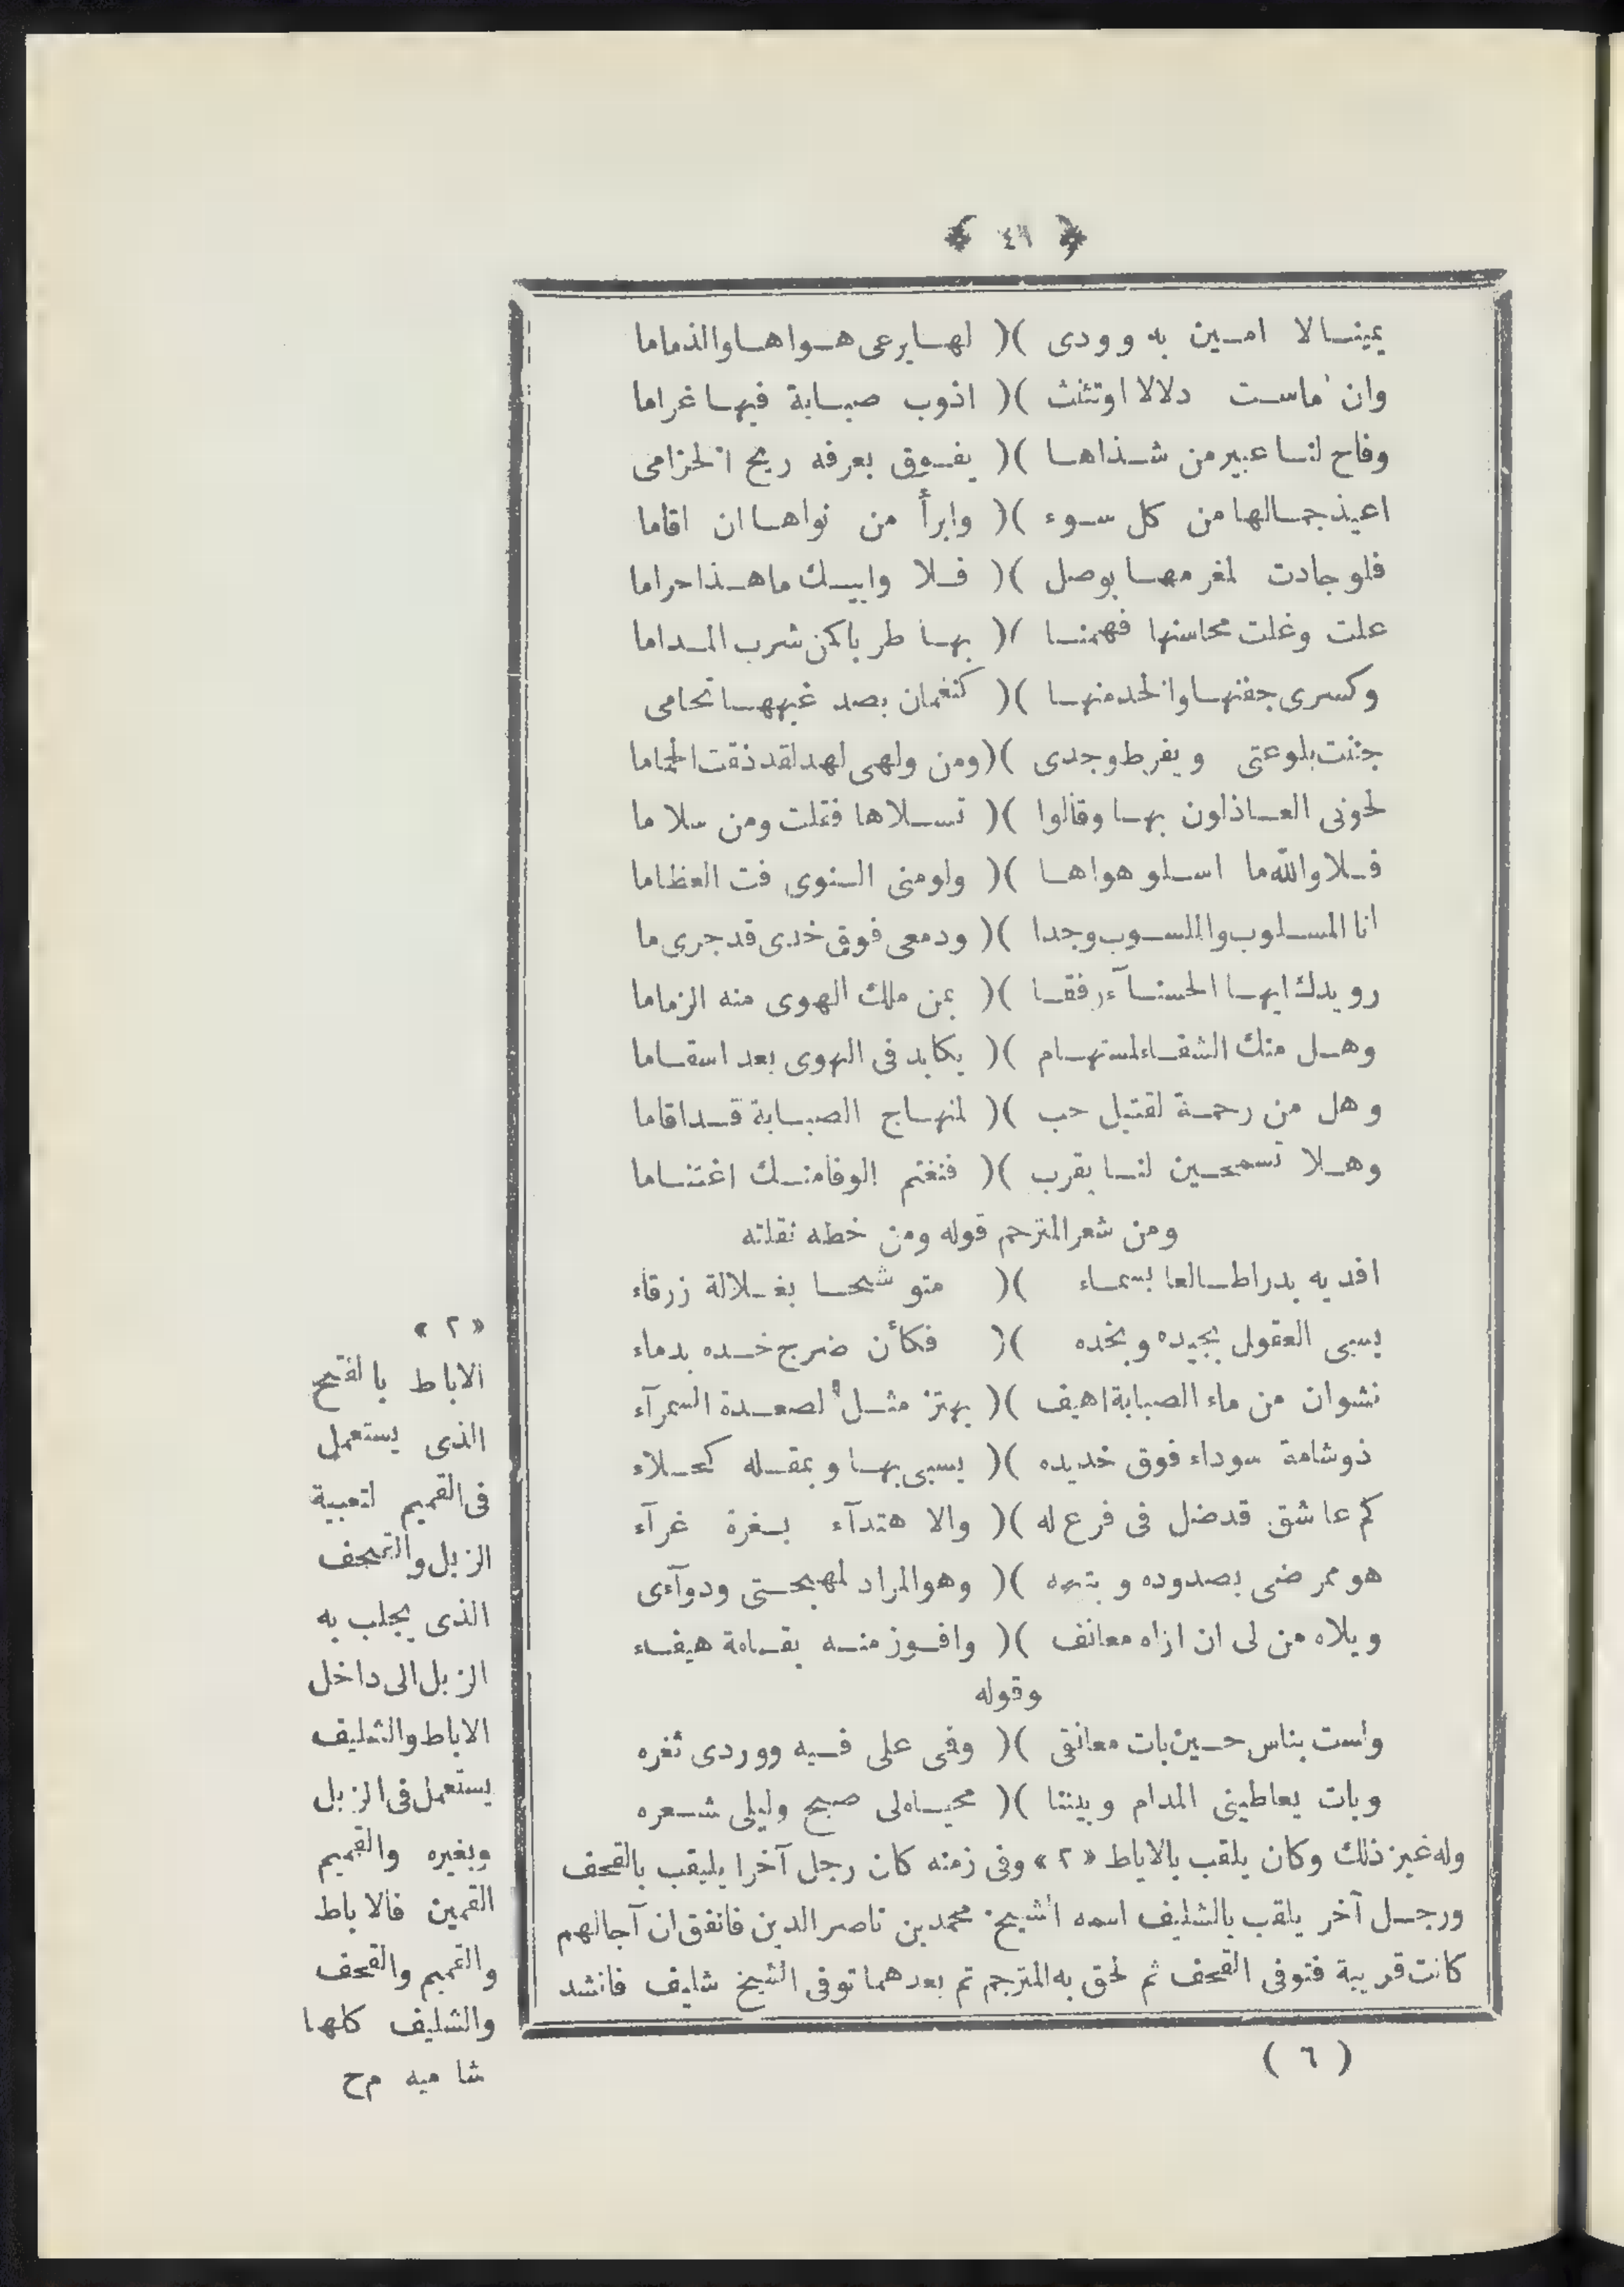 ﴿ ٤١ ﴾
يمينا لا امين به وودى )( لها يرعى هواها والذماما
وان ماست دلالا او تثنت )( اذوب صبابة فيها غراما
وفاح لنا عبير من شذاها )( يفوق بعرفه ريح الخزامى
اعيذ جمالها من كل سوء )( وابرأ من نواها ان اقاما
فلو جادت لمغرمها بوصل )( فلا وابيك ما هذا حراما
علت وغلت محاسنها فهمنا )( بها طربا كمن شرب المداما
وكسرى جفنها والخد منها )( كنغمان بصد غيهها تحامى
جننت بلوعتى وبفرط وجدى )( ومن ولهى لهد لقد ذقت الحماما
لحونى العاذلون بها وقالوا )( تسلاها فقلت ومن سلا ما
فلا والله ما اسلو هواها )( ولو منى النوى فت العظاما
انا المسلوب والملسوب وجدا )( ودمعى فوق خدى قد جرى ما
رويدك ايها الحسنآء رفقا )( بمن ملك الهوى منه الزماما
وهل منك الشفاء لمستهام )( يكابد فى الهوى بعد اسقاما
وهل من رحمة لقتيل حب )( لمنهاج الصبابة قد اقاما
وهلا تسمحين لنا بقرب )( فنغنم الوفا منك اغتناما
ومن شعر المترجم قوله ومن خطه نقلته
افديه بدرا طالعا بسماء )( متوشحا بغلالة زرقاء
يسبى العقول بجيده وبخده )( فكأن ضرج خده بدماء
نشوان من ماء الصبابة اهيف )( يهتز مثل الصعدة السمرآء
ذو شامة سوداء فوق خديده )( يسبى بها وبمقله كحلاء
كم عاشق قد ضل فى فرع له )( والاهتدآء بغرة غرآء
هو ممرضى بصدوده وبتيهه )( وهو المراد لمهجتى ودوآءى
ويلاه من لى ان اراه معانف )( وافوز منه بقامة هيفاء
وقوله
واست بناس حين بات معانقى )( وفى على فيه ووردى ثغره
وبات يعاطينى المدام وبيننا )( محياه لى صبح وليلى شعره
وله غير ذلك وكان يلقب بالاباط «٢» وفى زمنه كان رجل آخرا يليقب بالقحف
ورجل آخر يلقب بالشليف اسمه الشيخ محمد بن ناصر الدين فاتفق ان آجالهم
كانت قريبة فتوفى القحف ثم لحق به المترجم ثم بعدهما توفى الشيخ شليف فانشد
( ٦ )
«٢»
الاباط بالفتح
الذى يستعمل
فى القميم لتعبية
الزبل والقحف
الذى يجلب به
الزبل الى داخل
الاباط والشليف
يستعمل فى الزبل
وبغيره والقميم
القمين فالاباط
والقميم والقحف
والشليف كلها
شاميه م ح